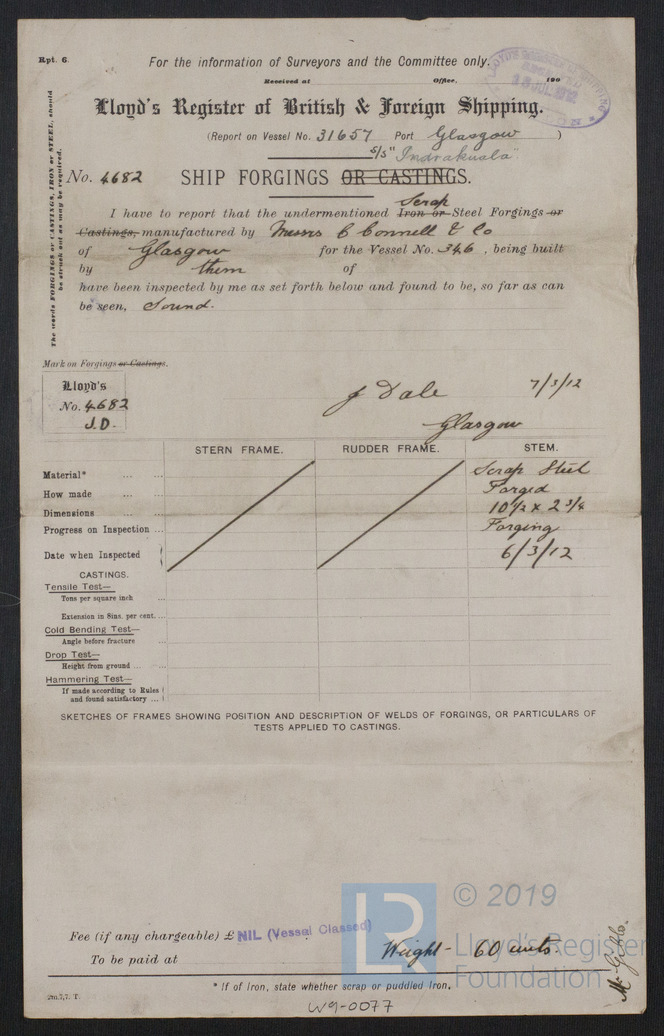 Rpt. 6.
For the information of Surveyors and the Committee only.
Received at Office, 190
Lloyd's Register of British & Foreign Shipping.
(Report on Vessel No. 31657 Port Glasgow )
S/S "Indrakuala"
No. 4682 SHIP FORGINGS OR CASTINGS.
Scrap
I have to report that the undermentioned Iron or Steel Forgings or
Castings, manufactured by Messrs C Connell & Co
of Glasgow for the Vessel No. 346, being built
by them of
have been inspected by me as set forth below and found to be, so far as can
be seen, Sound.
The words FORGINGS or CASTINGS, IRON or STEEL, should
be struck out as may be required.
Mark on Forgings or Castings.
Lloyd's
No. 4682
J.D.
J Dale 7/3/12
Glasgow
STERN FRAME. RUDDER FRAME. STEM.
Material* ... ... Scrap Steel
How made ... ... Forged
Dimensions ... ... 10 1/2 x 2 3/4
Progress on Inspection ... Forging
Date when Inspected 6/3/12
CASTINGS.
Tensile Test—
Tons per square inch ...
Extension in 8ins. per cent. ...
Cold Bending Test—
Angle before fracture ...
Drop Test—
Height from ground ... ...
Hammering Test—
If made according to Rules
and found satisfactory ...
SKETCHES OF FRAMES SHOWING POSITION AND DESCRIPTION OF WELDS OF FORGINGS, OR PARTICULARS OF
TESTS APPLIED TO CASTINGS.
LR
© 2019
Lloyd's Register
Foundation
Fee (if any chargeable) £ NIL (Vessel Classed)
To be paid at
Weight - 60 cwts.
* If of Iron, state whether scrap or puddled Iron.
2m,7,7. T.
W9-0077